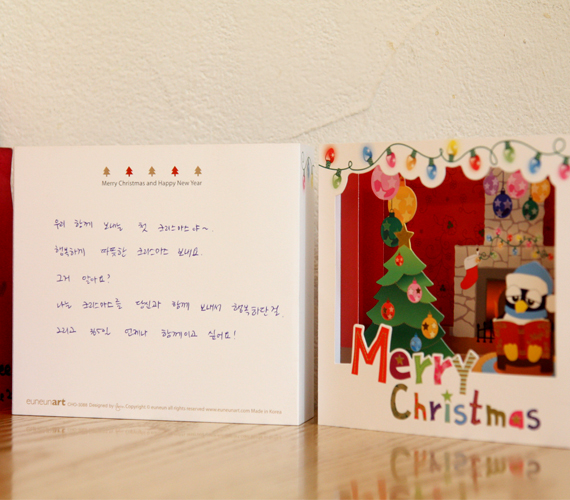 Merry Christmas and Happy New Year
우리 함께 보내는 첫 크리스마스야~.
행복하게 따뜻한 크리스마스 보내요.
그거 알아요?
나는 크리스마스를 당신과 함께 보내서 행복하단걸.
그리고 언제나 함께이고 싶어요!
euneunart Designed by Copyright © euneun all rights reserved www.euneunart.com Made in Korea
Merry
Christmas